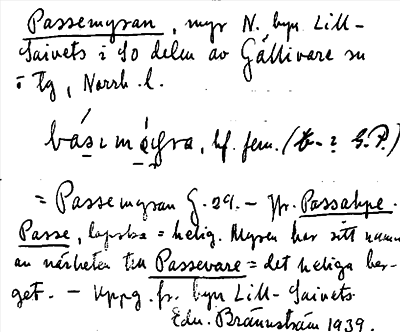 Passemyran, myr N. byn Lill-
Saivets i SO delen av Gällivare sn
i Lg, Norrb. l.
básimø̀yra, bf. fem. (b- = G.P.)
= Passemyran G. 29. – Jfr. Passalupe.
Passe, lapska = helig. Myren har sitt namn
av närheten till Passevare = det heliga ber-
get. – Uppg. fr. byn Lill-Saivets
Edv. Brännström 1939.